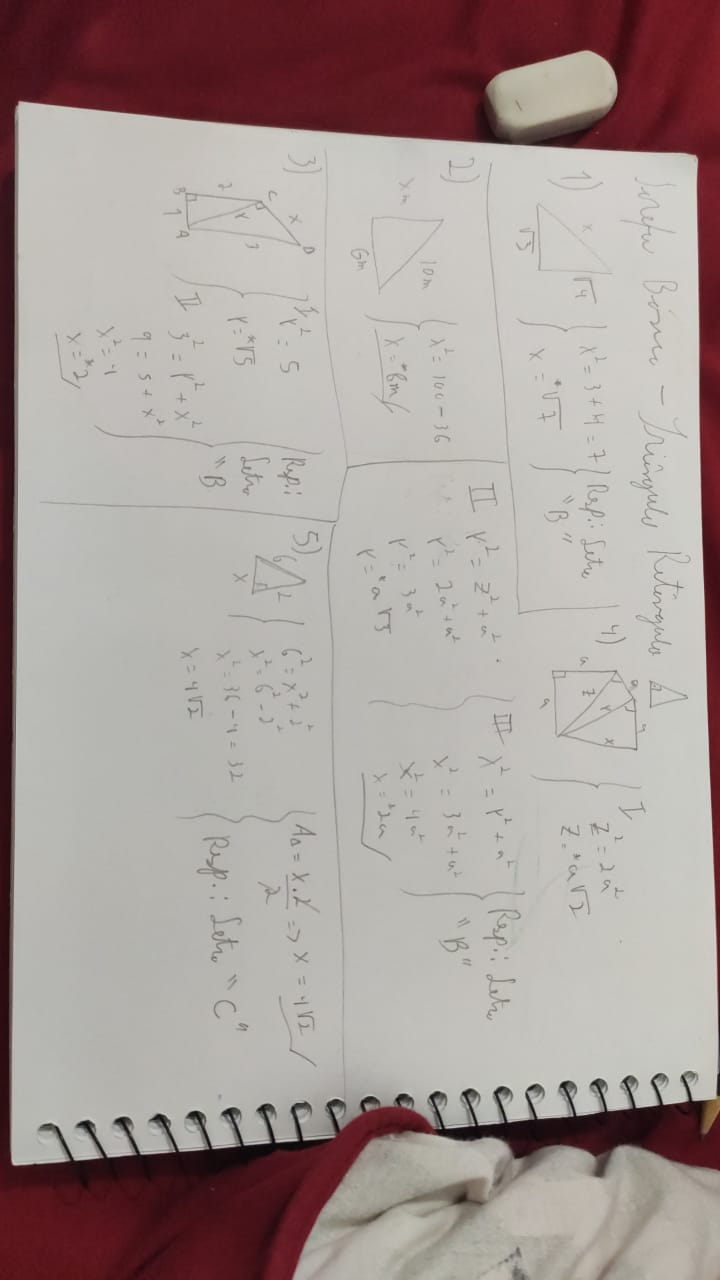 Tarefa Básica – Triângulo Retângulo
1)
x
√4
√3
x² = 3 + 4 = 7
x = √7
Resp.: Letra
"B"
2)
x m
10m
6m
x² = 100 – 36
x = 8m
3)
B
2
C
x
D
1
A
y
3
I
y² = 5
y = √5
II
3² = y² + x²
9 = 5 + x²
x² = 4
x = 2
Resp.:
Letra
"B
4)
a
a
a
a
z
y
x
I
z² = 2a²
z = a√2
II
y² = z² + a²
y² = 2a² + a²
y² = 3a²
y = a√3
III
x² = y² + a²
x² = 3a² + a²
x² = 4a²
x = 2a
Resp.: Letra
"B"
5)
6
2
x
6² = x² + 2²
x² = 6² – 2²
x² = 36 – 4 = 32
x = 4√2
A△ = x.2/2 => x = 4√2
Resp.: Letra "C"